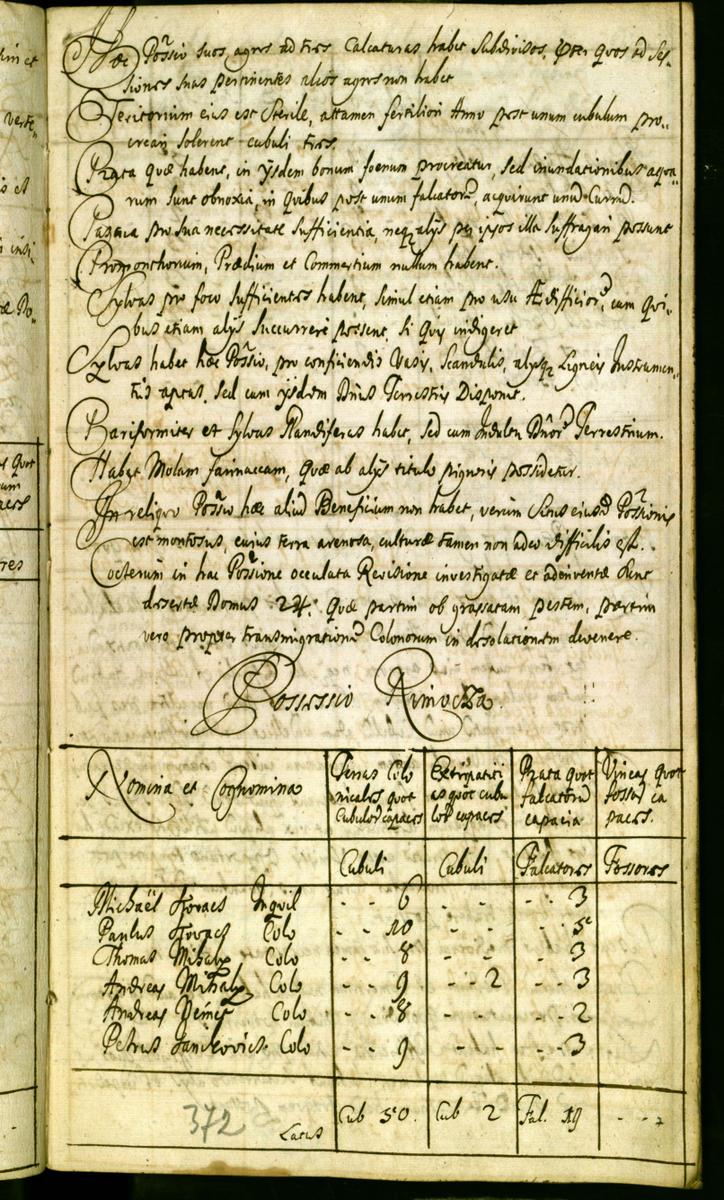 Hæc Possio suos agros ad tres Calcaturas habet Subdivisos, præter quos ad Ses-
siones suas pertinentes alios agros non habet
Teritorium eius est Sterile, attamen fertiliori Anno post unum cubulum pro-
creari solerent cubuli tres.
Prata quæ habent, in ijsdem bonum foenum procreatur, sed inundationibus aqua-
rum sunt obnoxia, in quibus post unum falcatorem, acquirunt unum Currum.
Pascua pro sua necessitate Sufficientia, neque alijs per ipsos illa Suffragari possunt
Promonthorium, Prædium et Commertium nullum habent.
Sylvas pro foco Sufficientes habent, Simul etiam pro usu Ædifficiorum, cum qui-
bus etiam alijs Succurrere possent, Si Quis indigeret
Sylvas habet hæc Possio, pro conficiendis Vasis, Scandulis, alijsque Ligneis Instrumen-
tis aptas, Sed cum ijsdem Dnus Terrestris Disponit.
Pariformiter et Sylvas Glandiferas habet, Sed cum Indultu Dnorum Terrestrium.
Habet Molam farinaceam, quæ ab alijs titulo pignoris possidetur.
In reliquo Possio hæc aliud Beneficium non habet, verum Situs eiusdem Possionis
est montosus, cuius terra arenosa, culturæ tamen non adeo difficilis est.
Coeterum in hac Possione occulata Revisione investigatæ et adinventæ Sunt
desertæ Domus 24. Quæ partim ob grassatam pestem, partim
vero propter transmigrationem Colonorum in desolationem devenere.
Possessio Rimocza
Nomina et Cognomina	Terras Colo	Extirpatiti	Prata quot	Vineas quot
nicales quot	as quot cubu	falcatorum	fossorum ca
Cubulorum capaces	lorum capaces	capacia	paces.
Cubuli	Cubuli	Falcatores	Fossores
Michaël Kovacs Inquil - - 6 - - - - 3
Paulus Kovacs Colo - - 10 - - - - 5
Thomas Mihaly Colo - - 8 - - - - 3
Andreas Mihaly Colo - - 9 - - 2 - - 3
Andreas Colo - - 8 - - - - 2
Petrus Jankovics Colo - - 9 - - - - - 3
372 Latus Cub 50. Cub 2 Fal. 19 - - -